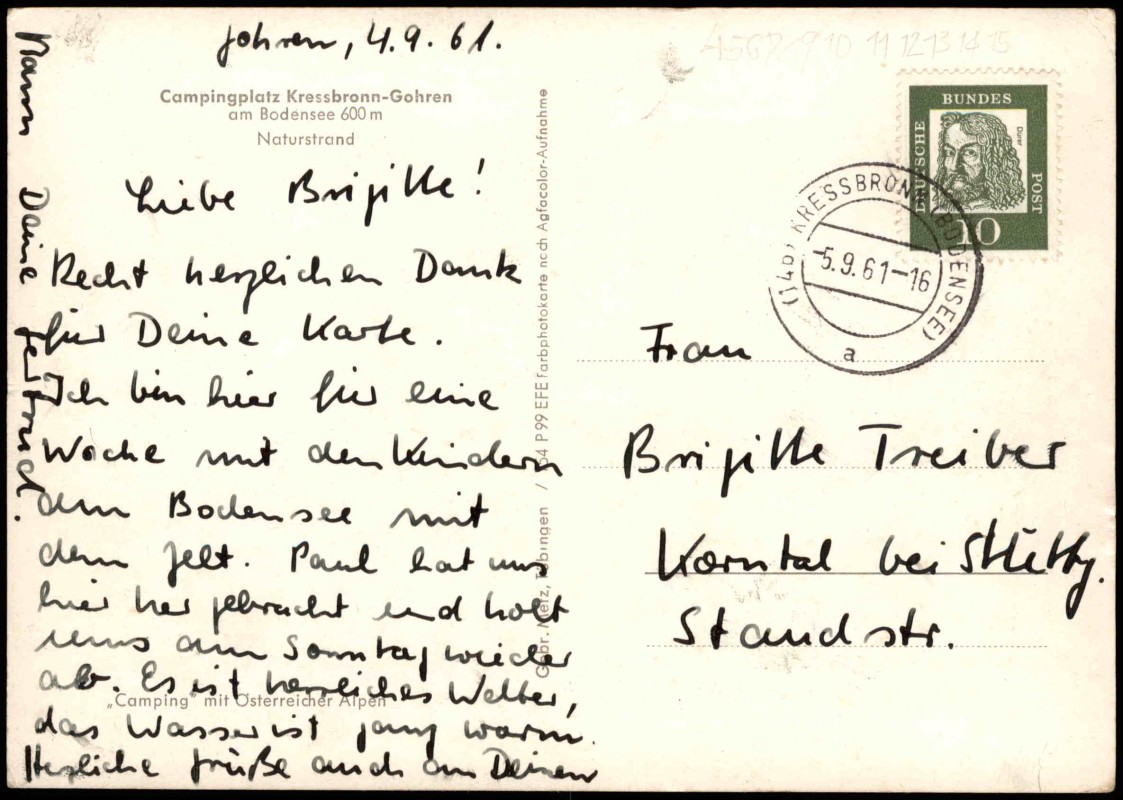 Gohren, 4.9.61.
Campingplatz Kressbronn-Gohren
am Bodensee 600 m
Naturstrand
Liebe Brigitte!
Recht herzlichen Dank
für Deine Karte.
Ich bin hier für eine
Woche mit den Kindern
am Bodensee mit
dem Zelt. Paul hat uns
hier her gebracht und holt
uns am Sonntag wieder
ab. Es ist herrliches Wetter,
„Camping" mit Österreicher Alpen
das Wasser ist ganz warm.
Herzliche Grüße auch an Deinen
Mann Deine Gertrud.
Gebr. Metz, Tübingen / 54 P 99 EFE Farbphotokarte nach Agfacolor-Aufnahme
4567 9 10 11 12 13 14 15
DEUTSCHE
BUNDES
POST
Dürer
10
KRESSBRONN (BODENSEE)
-5.9.61-16
a
Frau
Brigitte Treiber
Korntal bei Stuttg.
Staudstr.